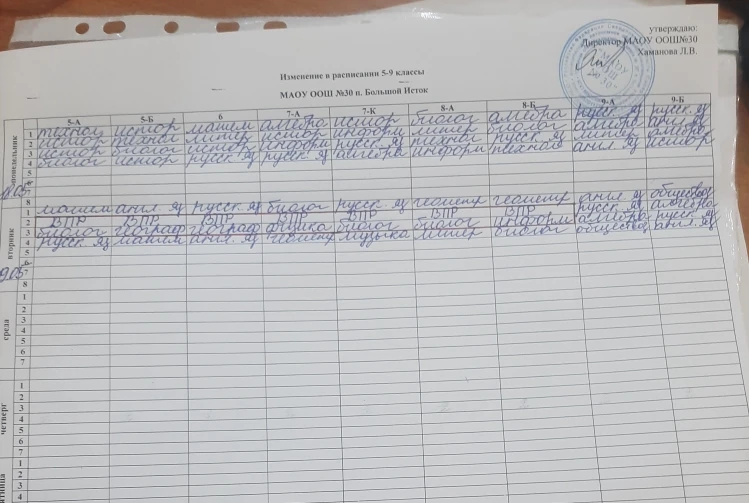 утверждаю:
Директор МАОУ ООШ№30
Хаманова Л.В.
Изменение в расписании 5-9 классы
МАОУ ООШ №30 п. Большой Исток
5-А 5-Б 6 7-А 7-К 8-А 8-Б 9-А 9-Б
понедельник
1 технол истор матем алгебра истор биолог алгебра русск. яз русск. яз
2 истор технол литер истор информ литер биолог алгебра англ. яз
3 истор биолог истор информ русск. яз технол русск. яз литер алгебра
4 биолог истор русск. яз русск. яз алгебра информ технол англ. яз истор
5
6
7
8
вторник
1 матем англ. яз русск. яз биолог русск. яз геометр геометр англ. яз обществоз
2 ВПР ВПР ВПР ВПР ВПР ВПР ВПР русск. яз алгебра
3 биолог географ географ физика биолог биолог информ алгебра русск. яз
4 русск. яз матем англ. яз геометр музыка литер биолог обществоз англ. яз
5
6
7
8
среда
1
2
3
4
5
6
7
четверг
1
2
3
4
5
6
7
1
2
3
4